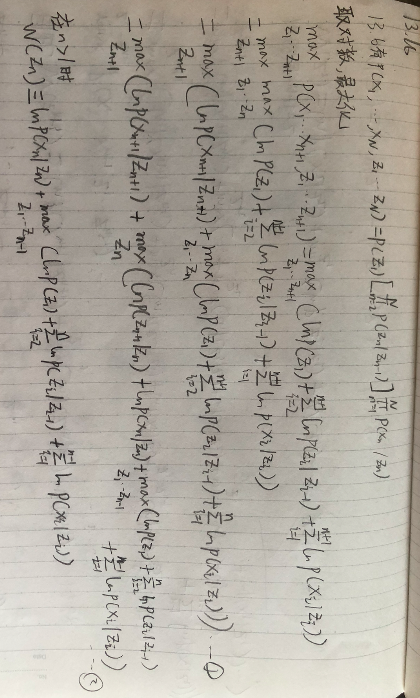 13.16
13.6有 p(x1, …, xN, z1 … zN) = p(z1) [∏_{n=2}^{N} p(zn|zn-1)] ∏_{n=1}^{N} p(xn|zn)
取对数, 最大化
max_{z1…zn+1} p(x1…xn+1, z1…zn+1) = max_{z1…zn+1} (lnp(z1) + ∑_{i=2}^{n+1} lnp(zi|zi-1) + ∑_{i=1}^{n+1} lnp(xi|zi))
= max_{zn+1} max_{z1…zn} (lnp(z1) + ∑_{i=2}^{n+1} lnp(zi|zi-1) + ∑_{i=1}^{n+1} lnp(xi|zi))
= max_{zn+1} (lnp(xn+1|zn+1) + max_{z1…zn} (lnp(z1) + ∑_{i=2}^{n+1} lnp(zi|zi-1) + ∑_{i=1}^{n} lnp(xi|zi))) …①
= max_{zn+1} (lnp(xn+1|zn+1) + max_{zn} (lnp(zn+1|zn) + lnp(xn|zn) + max_{z1…zn-1} (lnp(z1) + ∑_{i=2}^{n} lnp(zi|zi-1)
+ ∑_{i=1}^{n-1} lnp(xi|zi)) …②
在n>1时
W(zn) ≡ lnp(xn|zn) + max_{z1…zn-1} (lnp(z1) + ∑_{i=2}^{n} lnp(zi|zi-1) + ∑_{i=1}^{n-1} lnp(xi|zi))